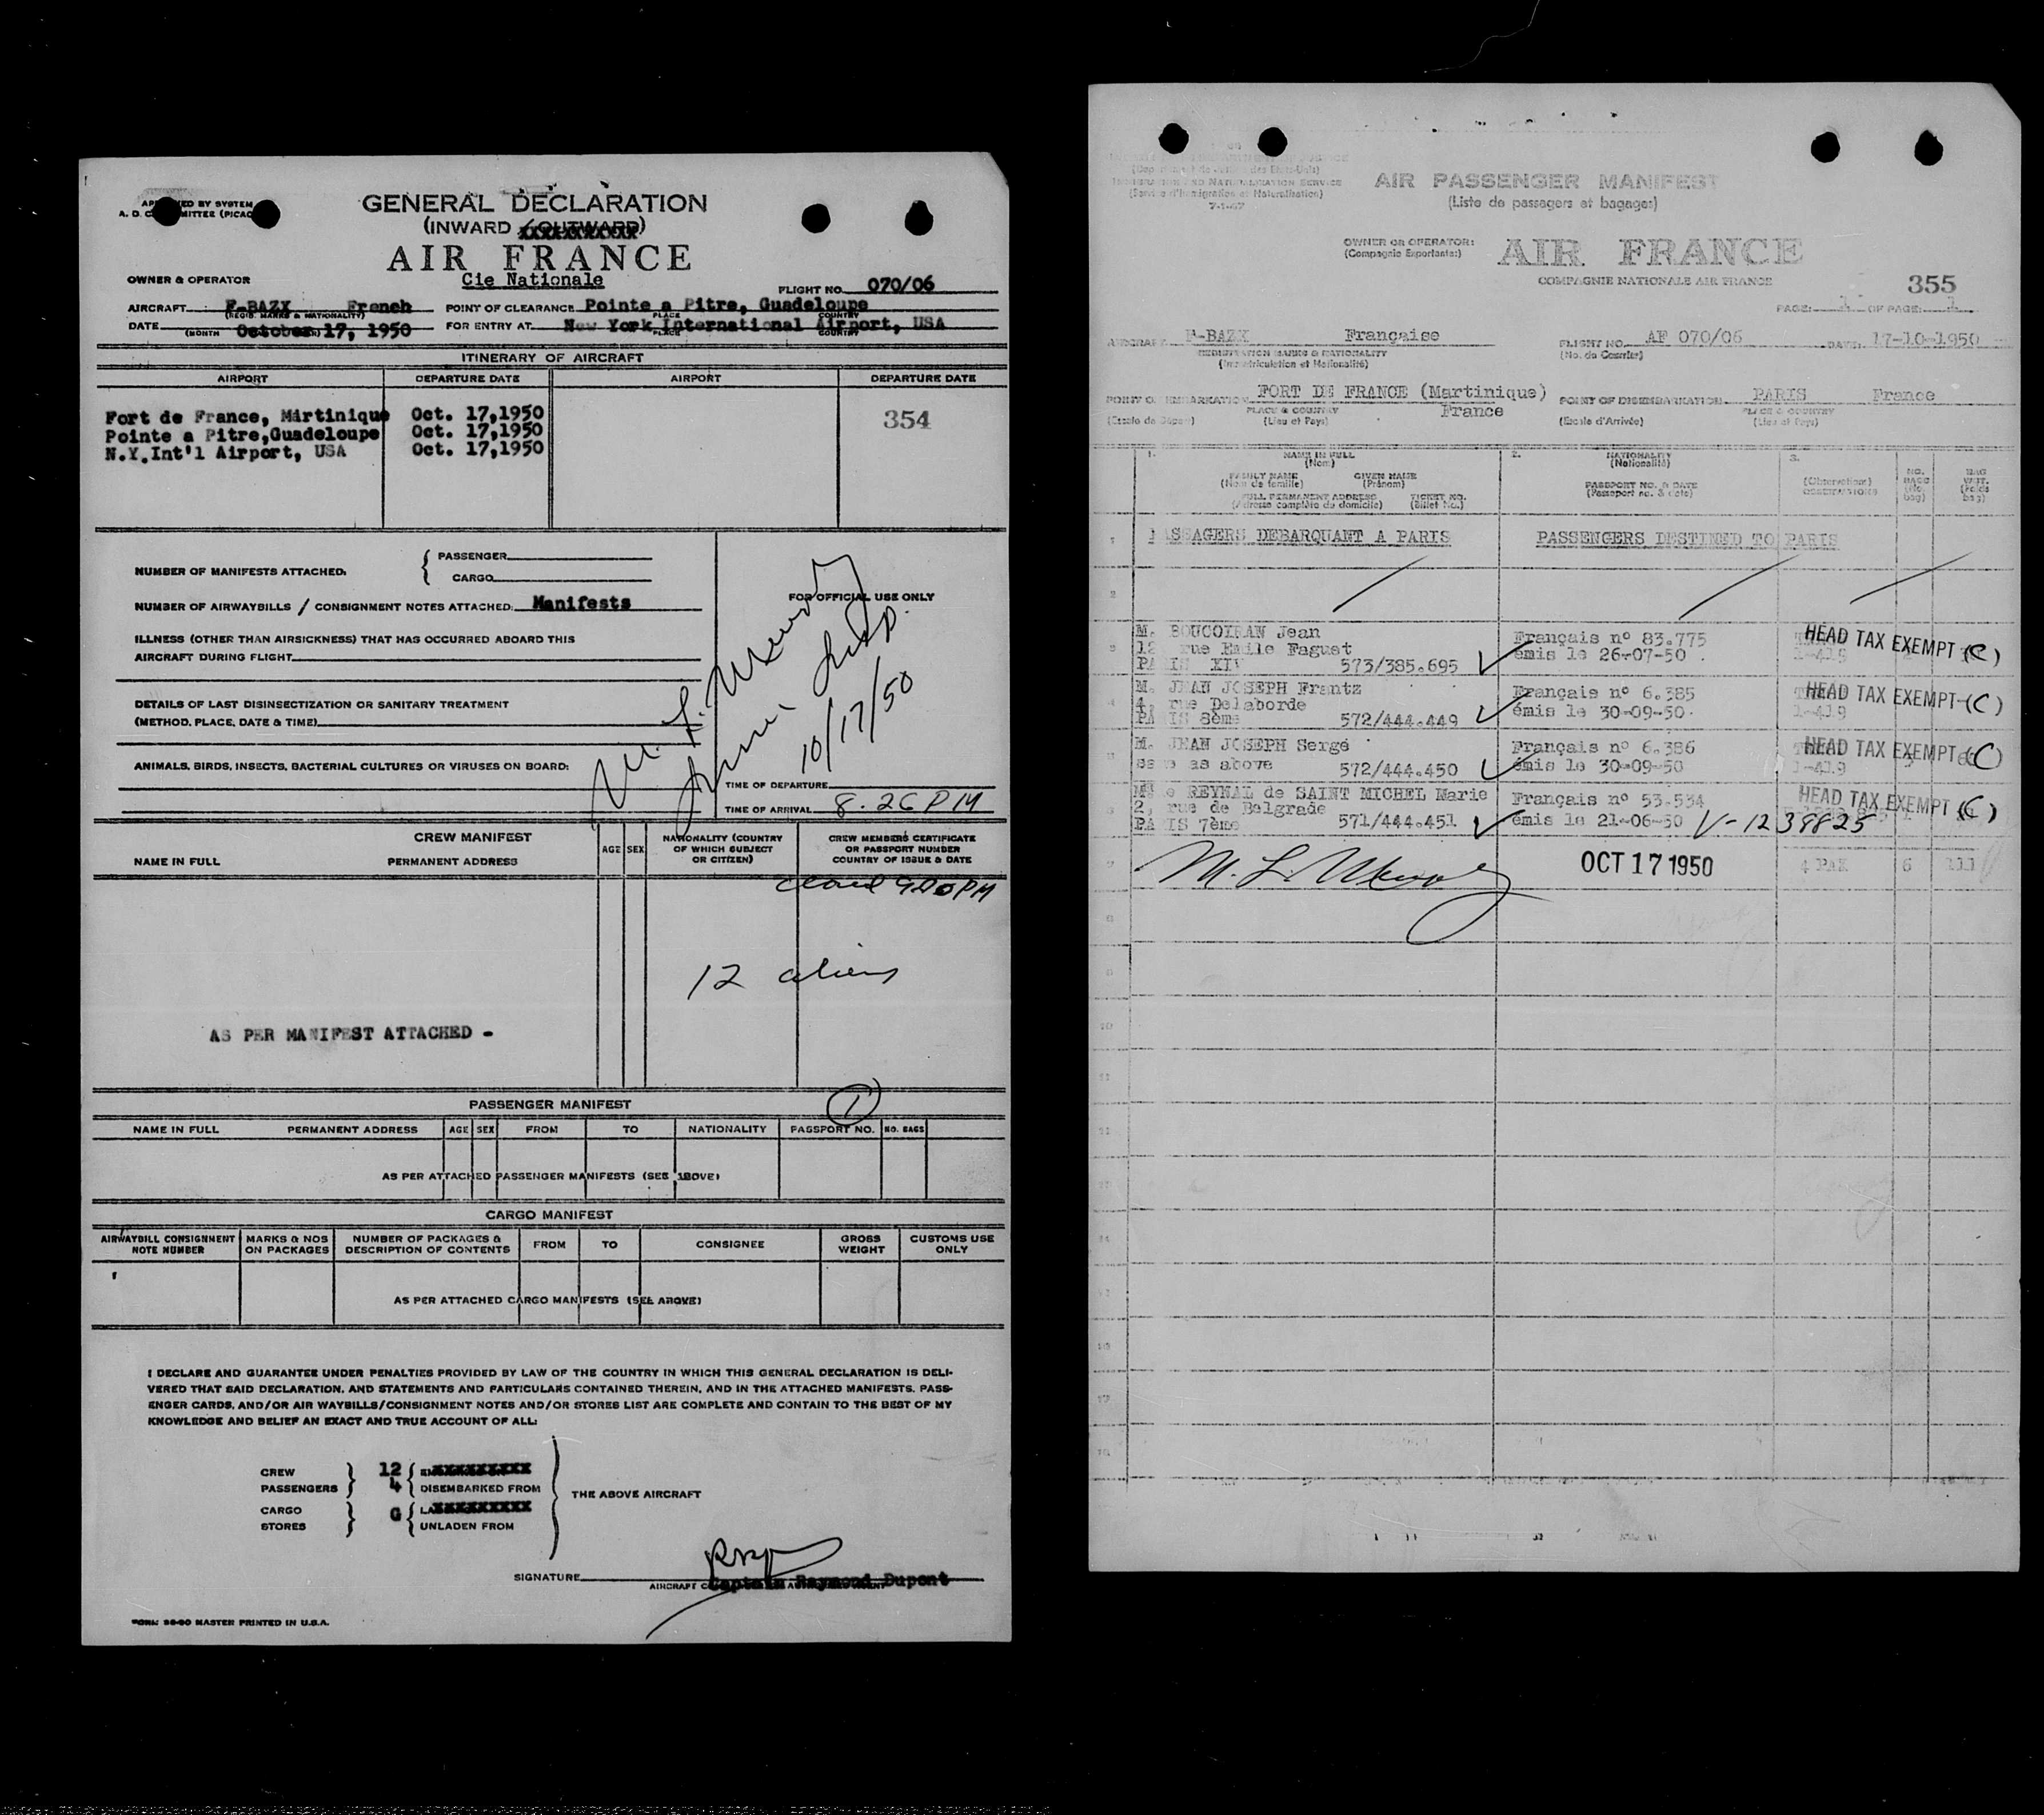 GENERAL DECLARATION
(INWARD / OUTWARD)
AIR FRANCE
Cie Nationale
OWNER & OPERATOR
FLIGHT NO. 070/06
AIRCRAFT F-BAZX French POINT OF CLEARANCE Pointe a Pitre, Guadeloupe
(REGIS. MARKS & NATIONALITY) PLACE COUNTRY
DATE October 17, 1950 FOR ENTRY AT New York International Airport, USA
(MONTH PLACE COUNTRY
ITINERARY OF AIRCRAFT
AIRPORT DEPARTURE DATE AIRPORT DEPARTURE DATE
Fort de France, Martinique Oct. 17,1950 354
Pointe a Pitre,Guadeloupe Oct. 17,1950
N.Y.Int'l Airport, USA Oct. 17,1950
NUMBER OF MANIFESTS ATTACHED: PASSENGER
CARGO
NUMBER OF AIRWAYBILLS / CONSIGNMENT NOTES ATTACHED: Manifests
FOR OFFICIAL USE ONLY
ILLNESS (OTHER THAN AIRSICKNESS) THAT HAS OCCURRED ABOARD THIS
AIRCRAFT DURING FLIGHT
DETAILS OF LAST DISINSECTIZATION OR SANITARY TREATMENT
(METHOD, PLACE, DATE & TIME)
10/17/50
ANIMALS, BIRDS, INSECTS, BACTERIAL CULTURES OR VIRUSES ON BOARD:
TIME OF DEPARTURE
TIME OF ARRIVAL 8.26 PM
CREW MANIFEST
NAME IN FULL PERMANENT ADDRESS AGE SEX NATIONALITY (COUNTRY OF WHICH SUBJECT OR CITIZEN) CREW MEMBERS CERTIFICATE OR PASSPORT NUMBER COUNTRY OF ISSUE & DATE
12 aliens
AS PER MANIFEST ATTACHED -
1
PASSENGER MANIFEST
NAME IN FULL PERMANENT ADDRESS AGE SEX FROM TO NATIONALITY PASSPORT NO. NO. BAGS
AS PER ATTACHED PASSENGER MANIFESTS (SEE ABOVE)
CARGO MANIFEST
AIRWAYBILL CONSIGNMENT NOTE NUMBER MARKS & NOS ON PACKAGES NUMBER OF PACKAGES & DESCRIPTION OF CONTENTS FROM TO CONSIGNEE GROSS WEIGHT CUSTOMS USE ONLY
AS PER ATTACHED CARGO MANIFESTS (SEE ABOVE)
I DECLARE AND GUARANTEE UNDER PENALTIES PROVIDED BY LAW OF THE COUNTRY IN WHICH THIS GENERAL DECLARATION IS DELI-
VERED THAT SAID DECLARATION, AND STATEMENTS AND PARTICULARS CONTAINED THEREIN, AND IN THE ATTACHED MANIFESTS, PASS-
ENGER CARDS, AND/OR AIR WAYBILLS/CONSIGNMENT NOTES AND/OR STORES LIST ARE COMPLETE AND CONTAIN TO THE BEST OF MY
KNOWLEDGE AND BELIEF AN EXACT AND TRUE ACCOUNT OF ALL:
CREW 12
PASSENGERS 4 DISEMBARKED FROM
THE ABOVE AIRCRAFT
CARGO G
STORES UNLADEN FROM
SIGNATURE Captain Raymond Dupont
MASTER PRINTED IN U.S.A.
AIR PASSENGER MANIFEST
(Liste de passagers et bagages)
(Service d'Immigration et Naturalisation)
7-1-47
OWNER OR OPERATOR: AIR FRANCE
(Compagnie Exportante:)
COMPAGNIE NATIONALE AIR FRANCE
355
PAGE: 1 OF PAGE: 1
AIRCRAFT F-BAZX Française FLIGHT NO. AF 070/06 DATE: 17-10-1950
REGISTRATION MARKS & NATIONALITY (No. de Courrier)
(Immatriculation et Nationalité)
POINT OF EMBARKATION FORT DE FRANCE (Martinique) POINT OF DISEMBARKATION PARIS France
PLACE & COUNTRY France PLACE & COUNTRY
(Escale de Départ) (Lieu et Pays) (Escale d'Arrivée) (Lieu et Pays)
1. NAME IN FULL 2. NATIONALITY 3.
(Nom) (Nationalité)
FAMILY NAME GIVEN NAME
(Nom de famille) (Prénom) PASSPORT NO. & DATE (Observations)
FULL PERMANENT ADDRESS TICKET NO. (Passeport no. & date)
(Adresse complète du domicile) (Billet No.)
PASSAGERS DEBARQUANT A PARIS PASSENGERS DESTINED TO PARIS
M. BOUCOIRAN Jean Français nº 83.775 HEAD TAX EXEMPT (C)
12 rue Emile Faguet émis le 26-07-50 1-419
PARIS XIV 573/385.695
M. JEAN JOSEPH Frantz Français nº 6.385 HEAD TAX EXEMPT (C)
4, rue Delaborde émis le 30-09-50 1-419
PARIS 8ème 572/444.449
M. JEAN JOSEPH Serge Français nº 6.386 HEAD TAX EXEMPT (C)
same as above 572/444.450 émis le 30-09-50 1-419
Mlle REYNAL de SAINT MICHEL Marie Français nº 53.534 HEAD TAX EXEMPT (C)
2, rue de Belgrade émis le 21-06-50 V-1239825
PARIS 7ème 571/444.451
OCT 17 1950 4 PAX 6 111